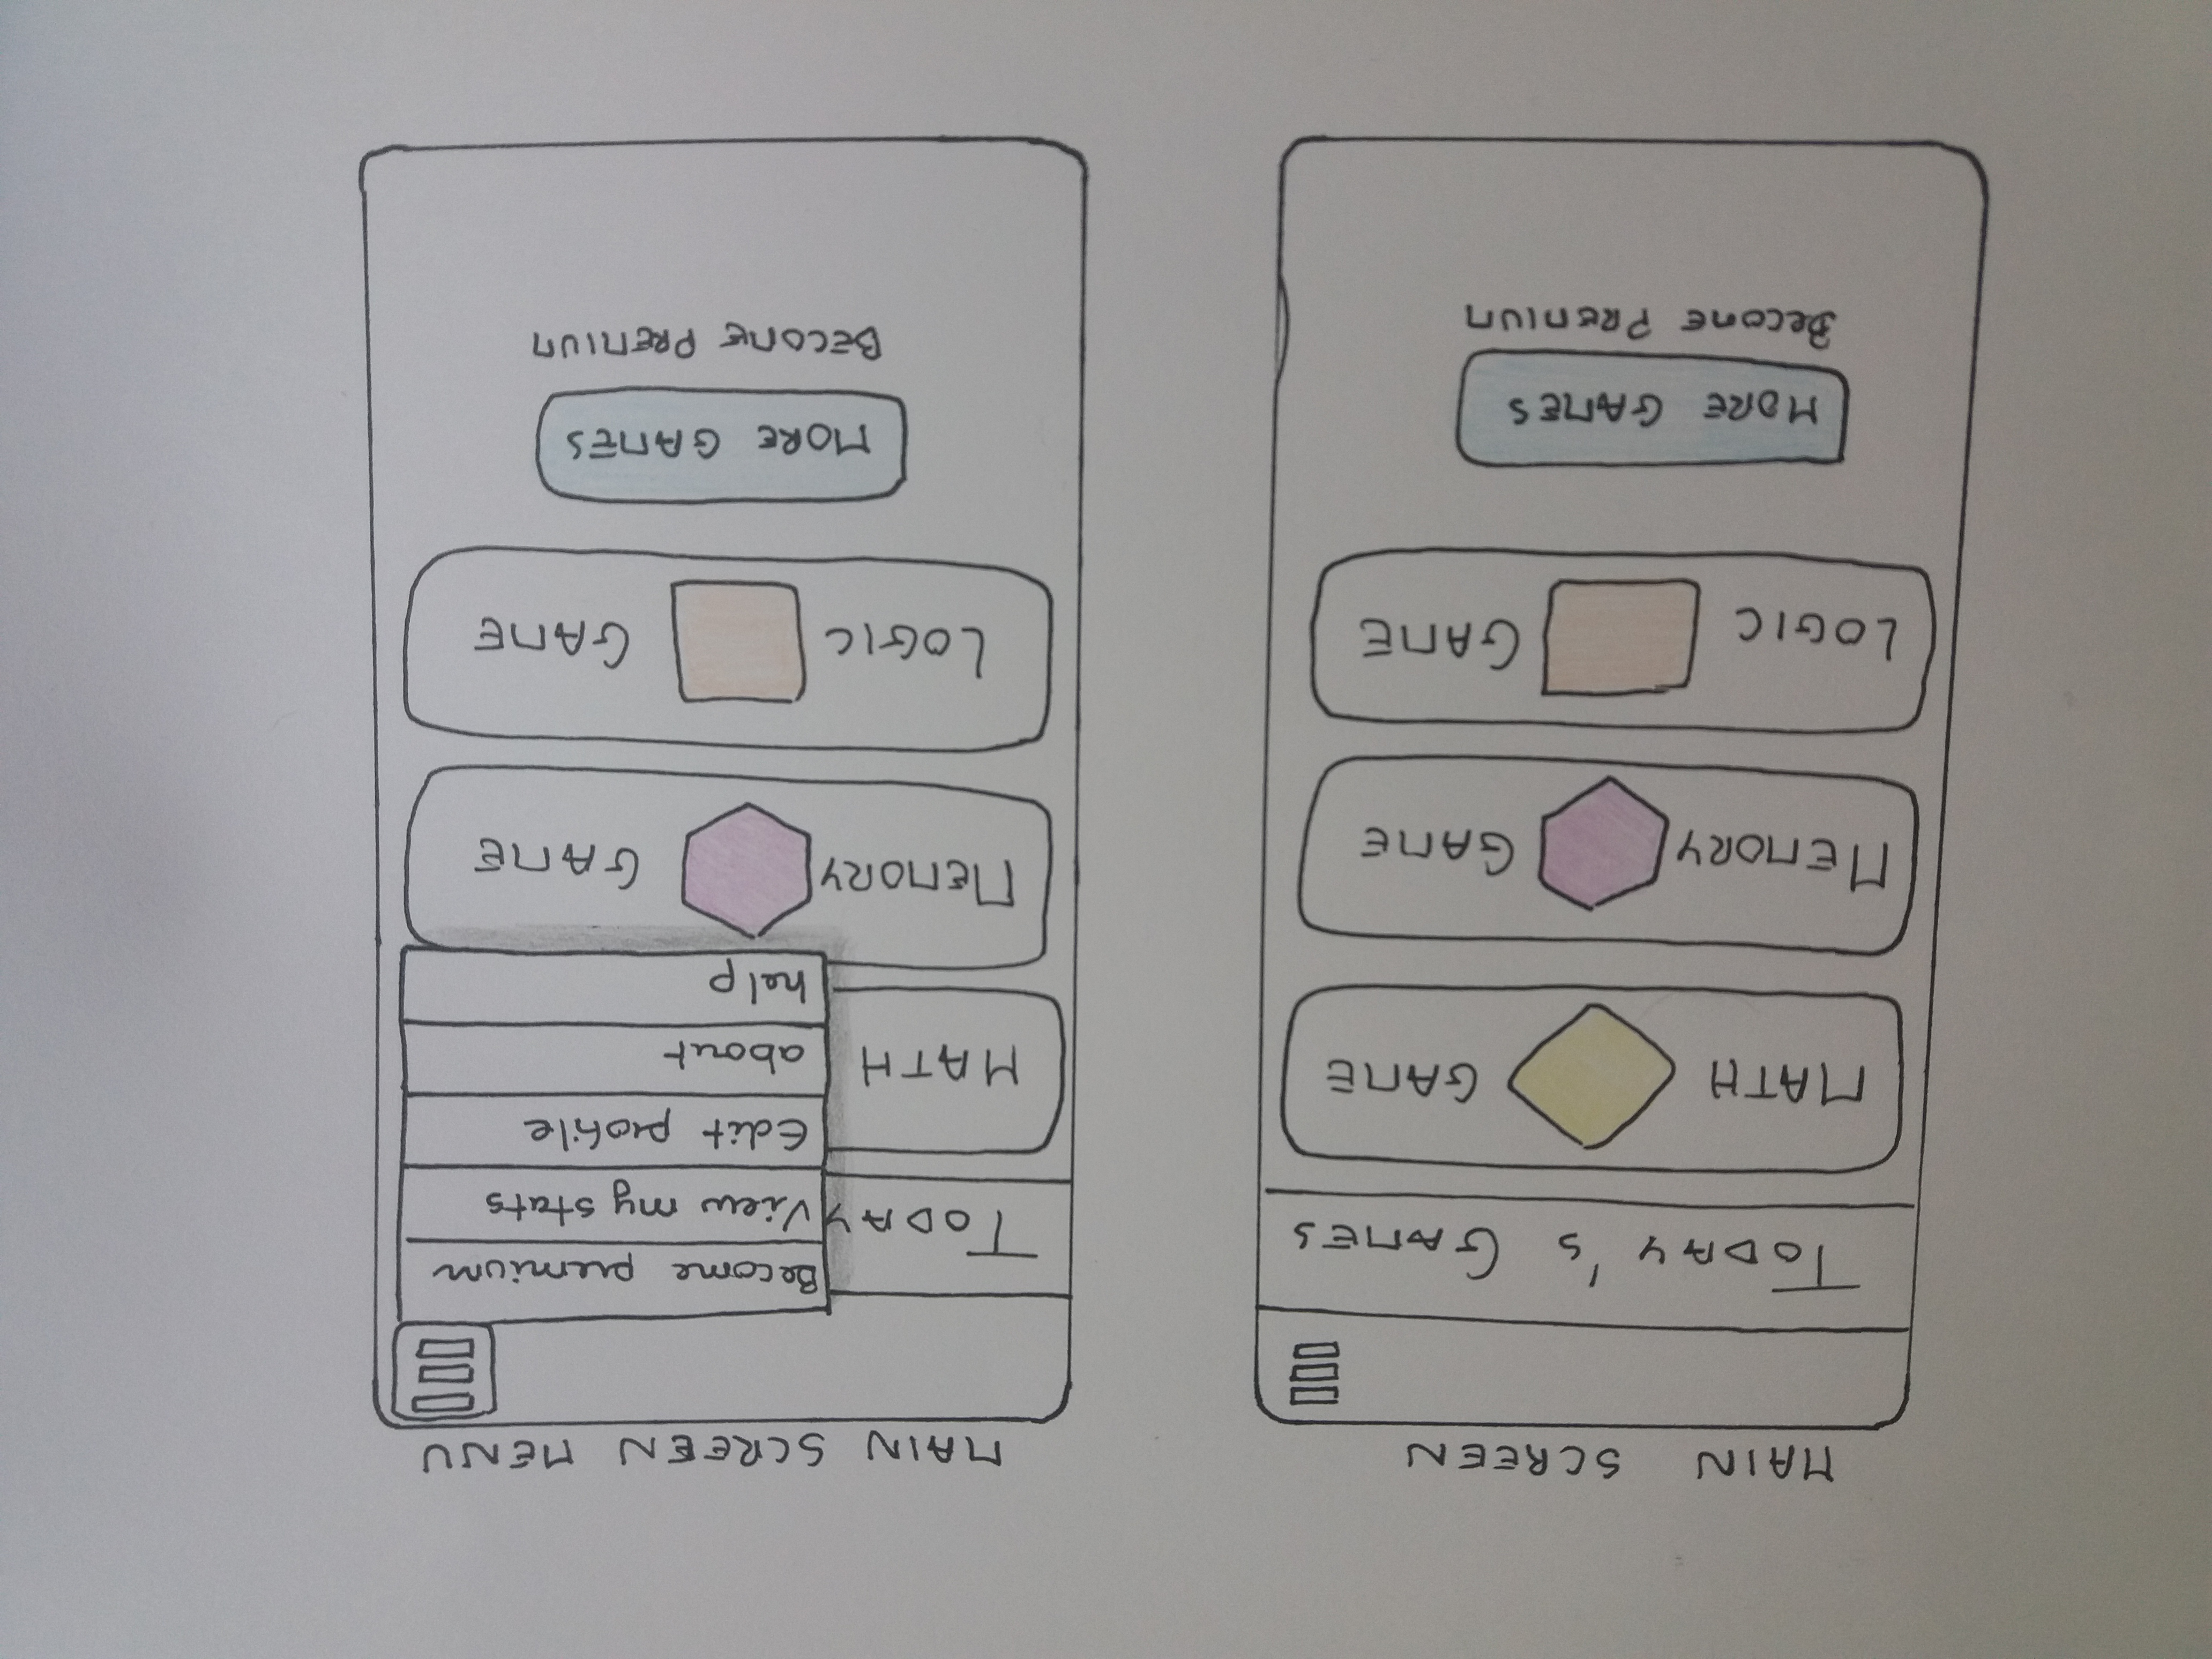 MAIN SCREEN
TODAY'S GAMES
MATH GAME
MEMORY GAME
LOGIC GAME
MORE GAMES
BECOME PREMIUM
MAIN SCREEN MENU
Become premium
TODAY
View my stats
Edit profile
MATH
about
help
MEMORY GAME
LOGIC GAME
MORE GAMES
BECOME PREMIUM